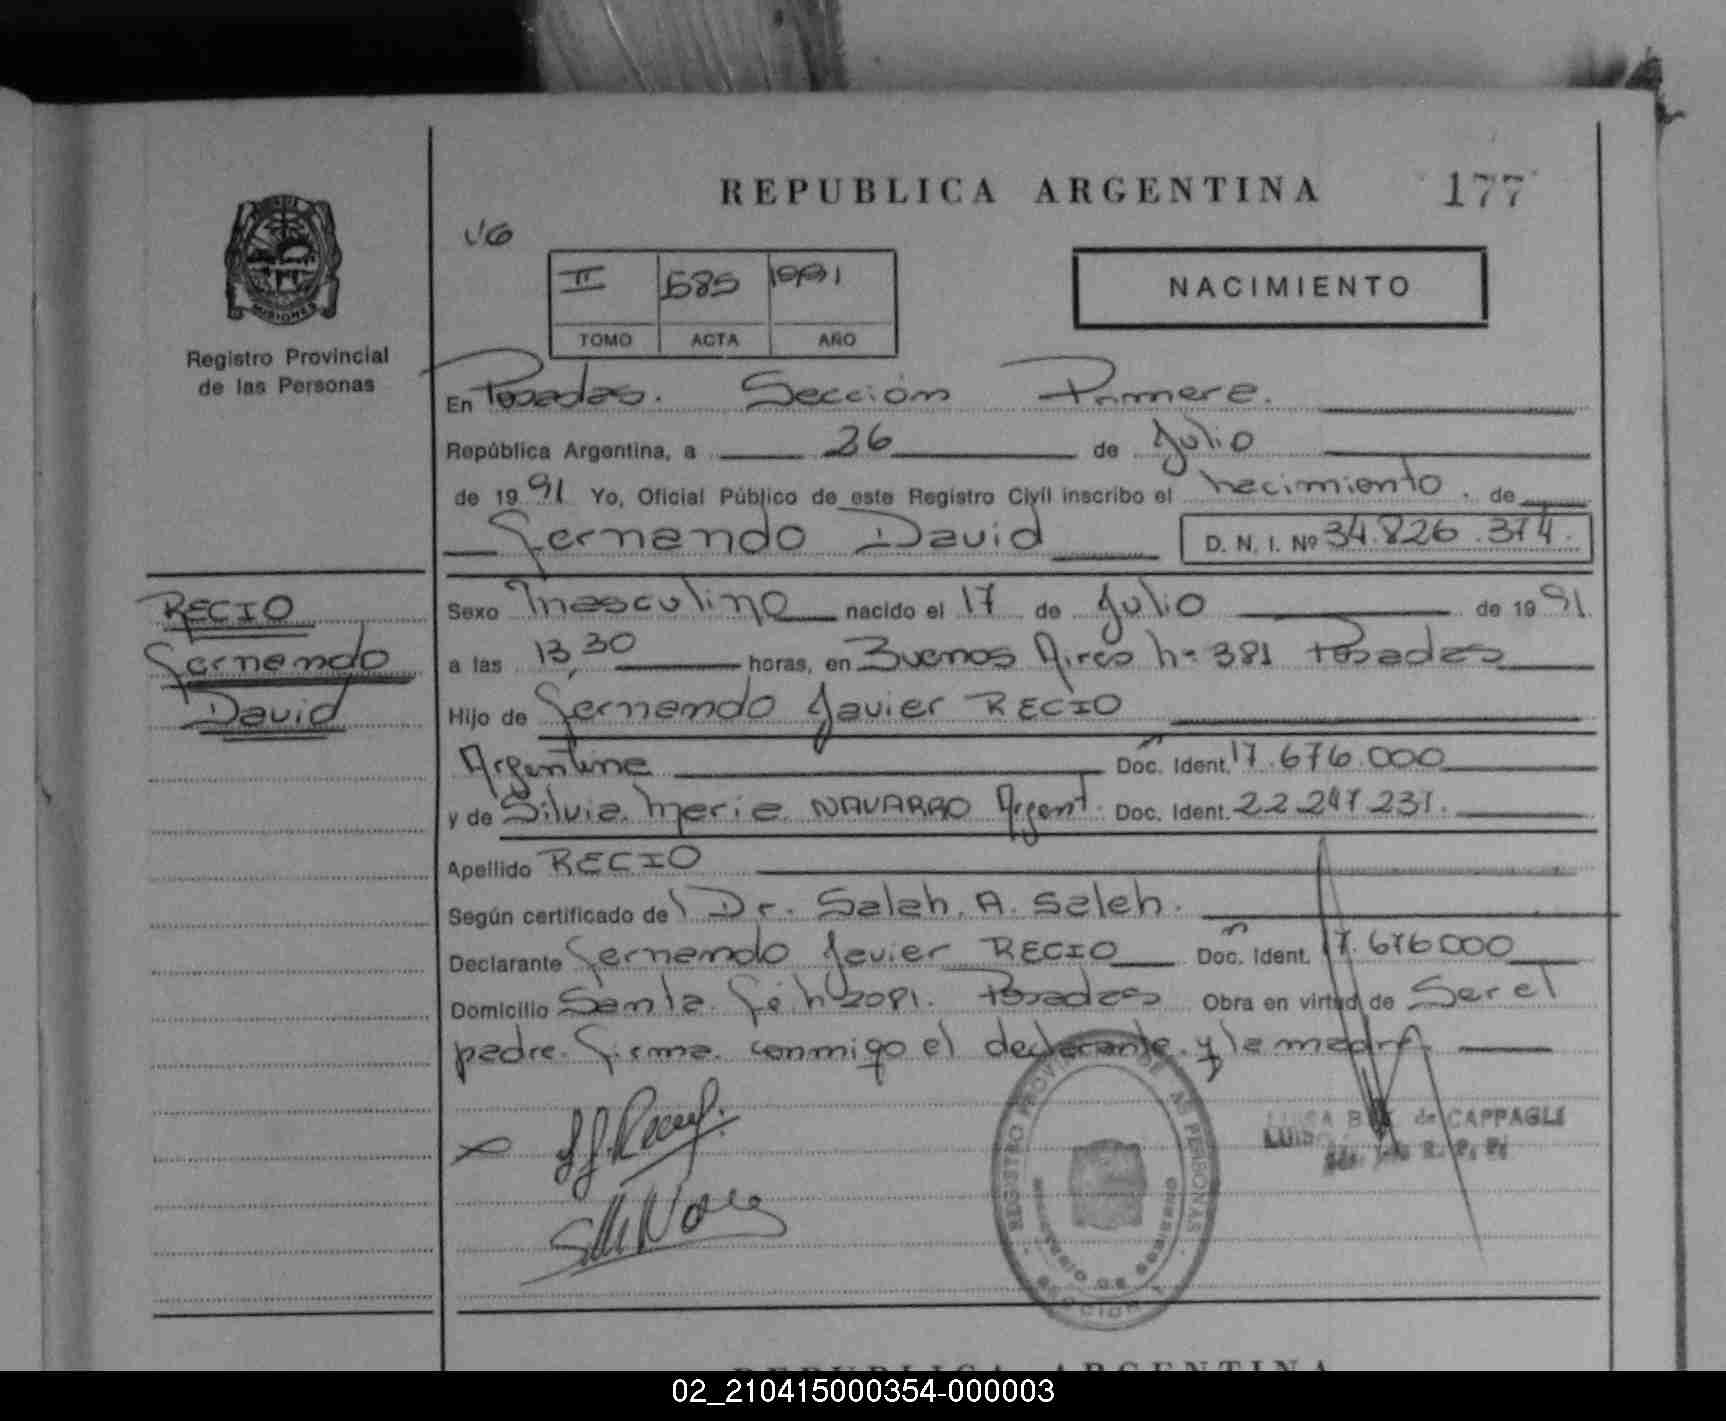 REPUBLICA ARGENTINA
177
MISIONES
Registro Provincial
de las Personas
II 585 1991
TOMO ACTA AÑO
NACIMIENTO
En Posadas. Sección Primera.
República Argentina, a 26 de Julio
de 1991 Yo, Oficial Público de este Registro Civil inscribo el nacimiento, de
Fernando David D. N. I. Nº 34.826.374.
RECIO
Fernando
David
Sexo Masculino nacido el 17 de Julio de 1991
a las 13,30 horas, en Buenos Aires nº 381 Posadas
Hijo de Fernando Javier RECIO
Argentino Doc. Ident. 17.676.000
y de Silvia Maria NAVARRO Argent. Doc. Ident. 22.247.231.
Apellido RECIO
Según certificado del Dr. Salah. A. Saleh.
Declarante Fernando Javier RECIO Doc. Ident. 17.676000
Domicilio Santa Fé nº 2081. Posadas Obra en virtud de Ser el
padre. Firma conmigo el declarante y la madre.
REGISTRO PROVINCIAL DE LAS PERSONAS
MINISTERIO DE GOBIERNO
SECCION 1
LUISA B. de CAPPAGLI
REPUBLICA ARGENTINA
02_210415000354-000003